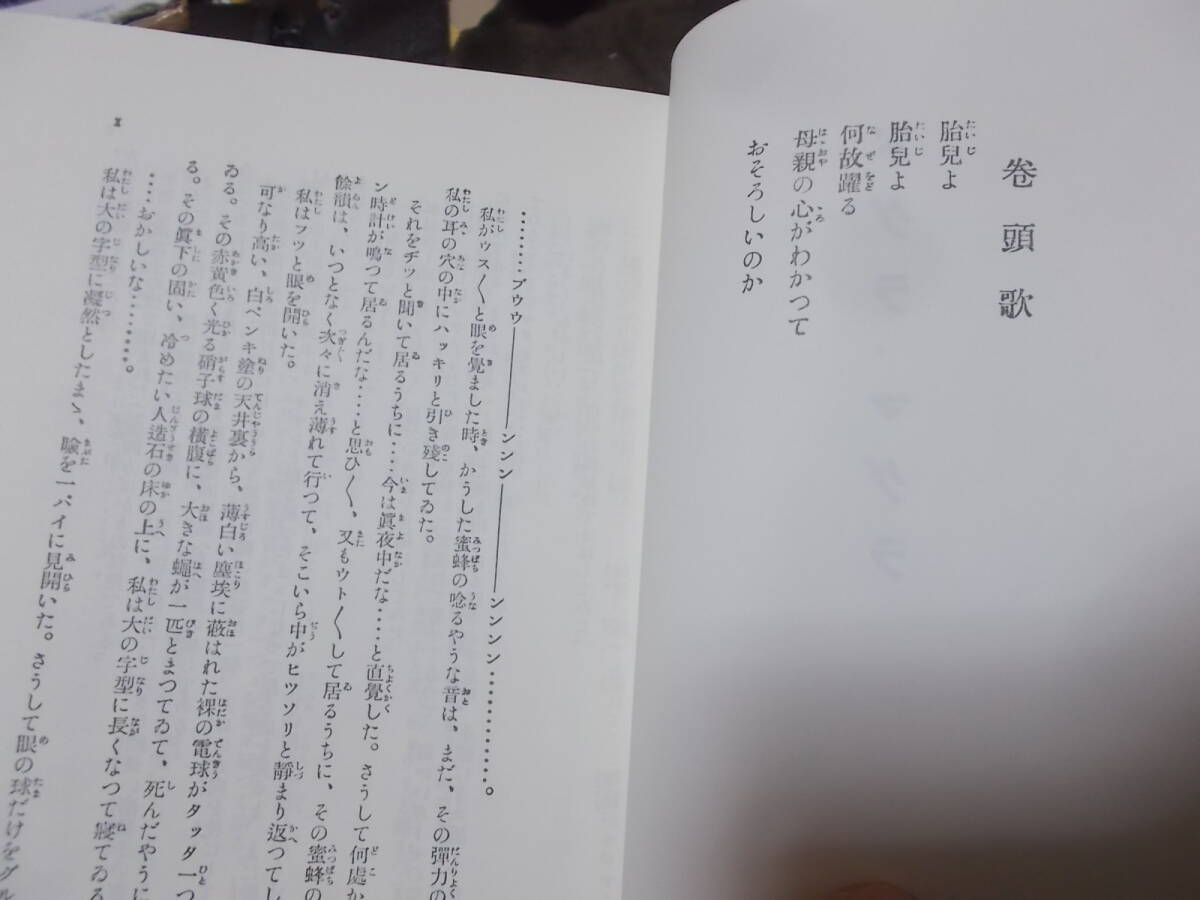 巻頭歌
胎兒よ
胎兒よ
何故躍る
母親の心がわかつて
おそろしいのか
………ブウウ―――ンンン―――ンンンン…………。
私がウス〱と眼を覺ました時、かうした蜜蜂の唸るやうな音は、まだ、その彈力の
私の耳の穴の中にハッキリと引き殘してゐた。
それをヂッと聞いて居るうちに‥‥今は眞夜中だな‥‥と直覺した。さうして何處か
ン時計が鳴つて居るんだな‥‥と思ひ〱、又もウト〱して居るうちに、その蜜蜂の
餘韻は、いつとなく次々に消え薄れて行つて、そこいら中がヒツソリと靜まり返つてし
私はフッと眼を開いた。
可なり高い、白ペンキ塗の天井裏から、薄白い塵埃に蔽はれた裸の電球がタッタ一つ
ゐる。その赤黄色く光る硝子球の横腹に、大きな蠅が一匹とまつてゐて、死んだやうに
る。その眞下の固い、冷めたい人造石の床の上に、私は大の字型に長くなつて寢てゐる
‥‥おかしいな………。
私は大の字型に凝然としたまゝ、瞼を一パイに見開いた。さうして眼の球だけをグル